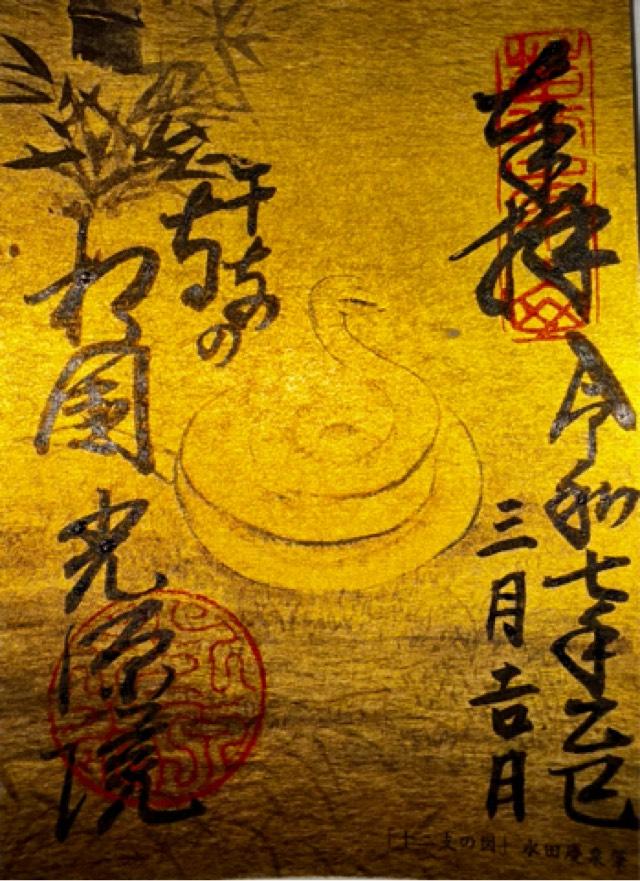 奉拝
令和七年乙巳
三月吉日
干支の
相国
光源院
「十二支の図」水田慶泉筆